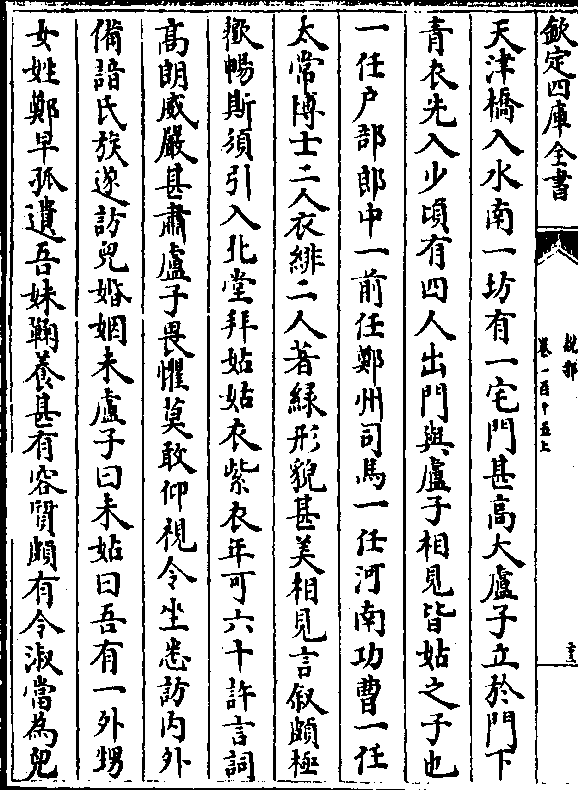 欽定四庫全書
說郛
卷一百十五上
天津橋入水南一坊有一宅門甚髙大盧子立於門下
青衣先入少頃有四人出門與盧子相見皆姑之子也
一任户部郎中一前任鄭州司馬一任河南功曹一任
太常博士二人衣緋二人著緑形貌甚美相見言叙頗極
歡暢斯須引入北堂拜姑姑衣紫衣年可六十許言詞
髙朗威嚴甚肅盧子畏懼莫敢仰視令坐悉訪内外
備諳氏族遂訪兒婚姻未盧子曰未姑曰吾有一外甥
女姓鄭早孤遺吾妹鞠養甚有容質頗有令淑當為兒